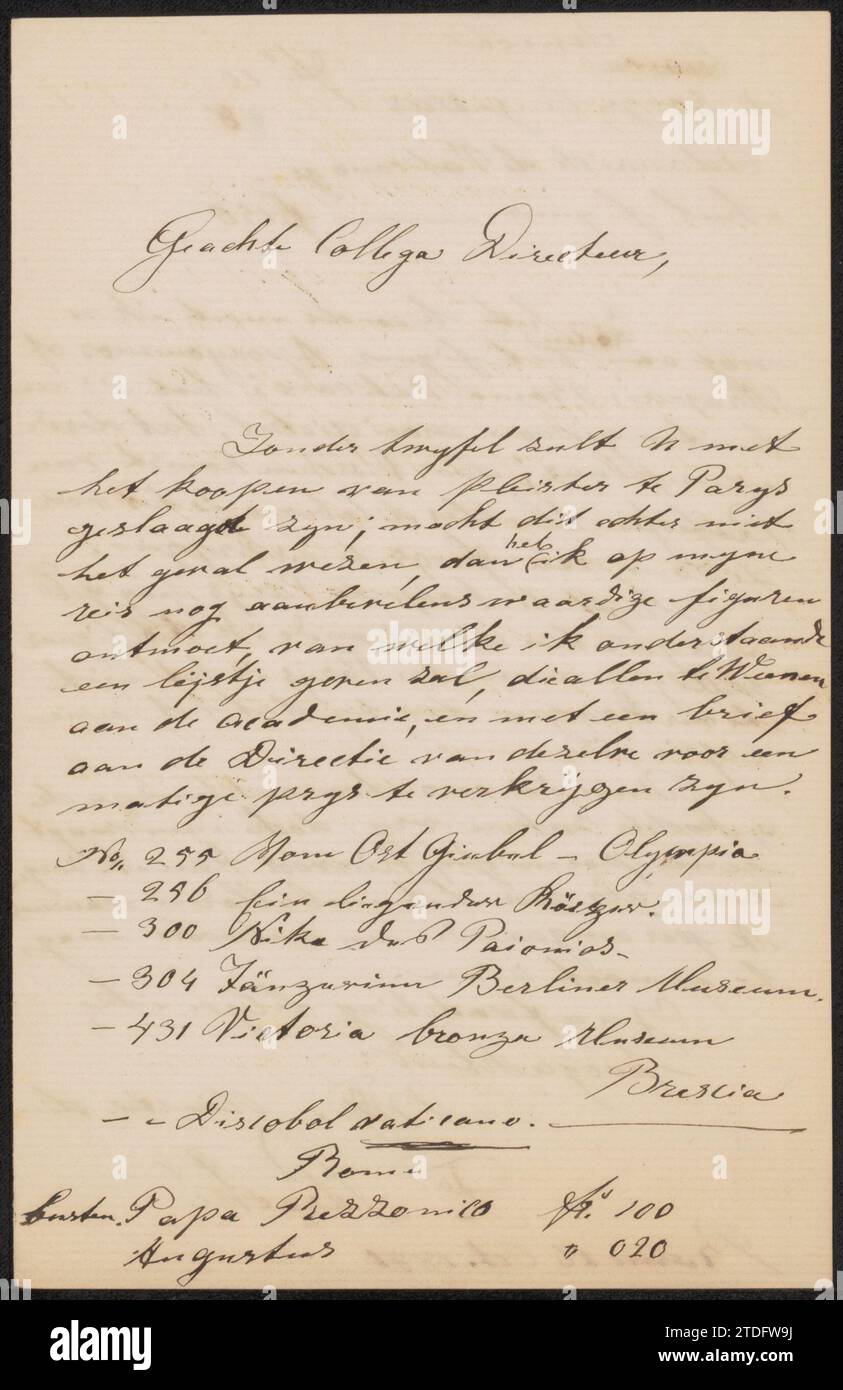 Geachte Collega Directeur,
Zonder twyfel zult U met
het koopen van pleister te Parys
geslaagd zyn; mocht dit echter niet
het geval wezen, dan heb ik op myne
reis nog aanbevelenswaardige figuren
ontmoet, van welke ik onderstaande
een lijstje geven zal, die allen te Weenen
aan de academie, en met een brief
aan de Directie van dezelve voor een
matige prys te verkrijgen zyn.
No. 255 Vom Ost Giebel – Olympia
— 256 Ein liegender
— 300 Nike des Paionios –
— 304 Tänzerinn Berliner Museum.
— 431 Victoria bronze Museum
Brescia
— " Discobol vaticano.
Rome
busten. Papa Rezzonico fr. 100
Augustus " 020
alamy
Image ID: 2TDFW9J
www.alamy.com